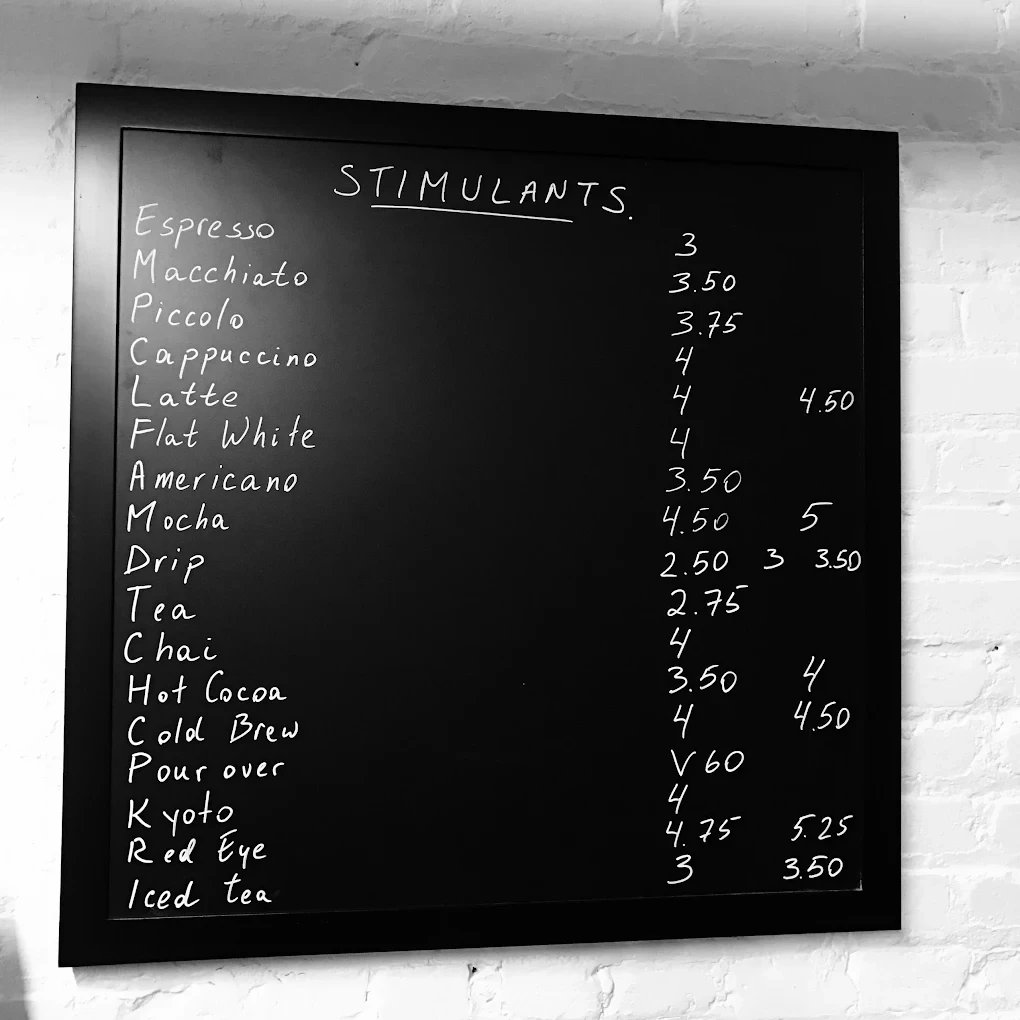 STIMULANTS.
Espresso 3
Macchiato 3.50
Piccolo 3.75
Cappuccino 4
Latte 4 4.50
Flat White 4
Americano 3.50
Mocha 4.50 5
Drip 2.50 3 3.50
Tea 2.75
Chai 4
Hot Cocoa 3.50 4
Cold Brew 4 4.50
Pour over V60
Kyoto 4
Red Eye 4.75 5.25
Iced tea 3 3.50